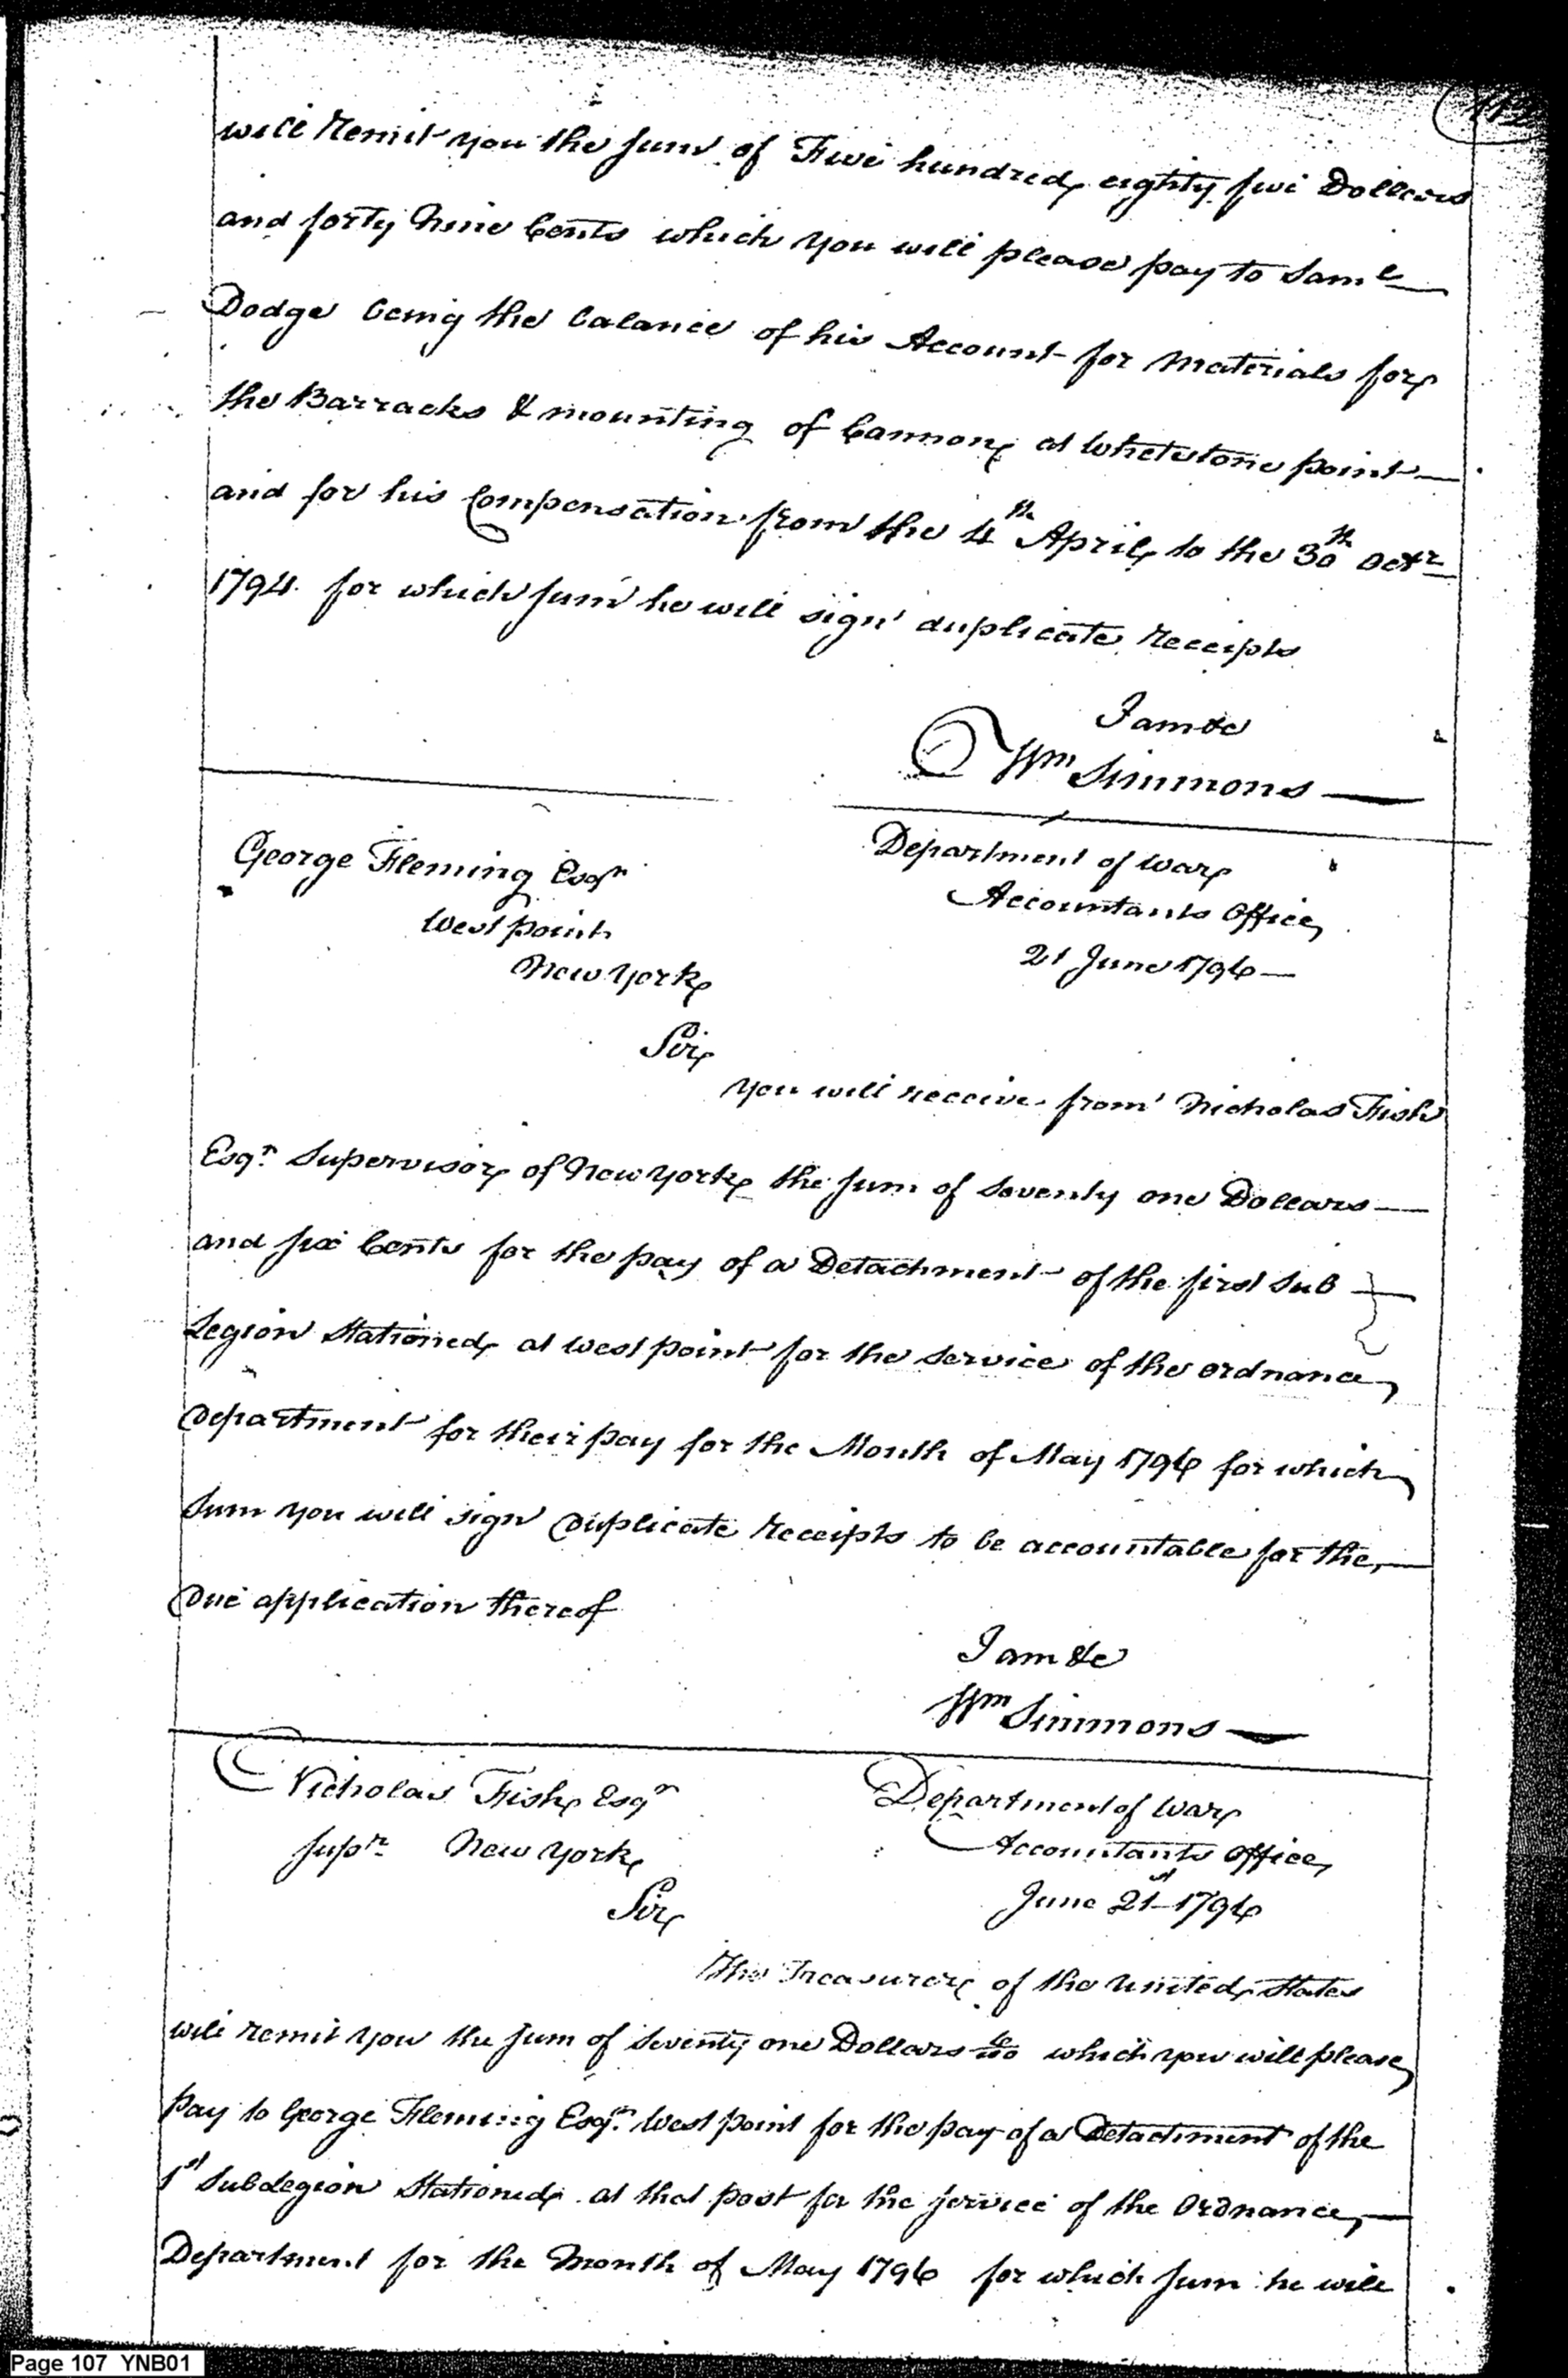 112
will remit you the sum of Five hundred eighty five Dollars
and forty Nine Cents which you will please pay to Saml
Dodge being the balance of his Account for Materials for
the Barracks & mounting of Cannon at Whetstone point
and for his Compensation from the 4th April to the 30th Octr
1794. for which sum he will sign duplicate receipts
I am &c
Wm Simmons
George Fleming Esqr
West point
New York
Department of War
Accountants Office
21 June 1796
Sir
You will receive from Nicholas Fish
Esqr. Supervisor of New York the sum of Seventy one Dollars
and six Cents for the pay of a Detachment of the first Sub
Legion Stationed at West point for the Service of the ordnance
Department for their pay for the Month of May 1796 for which
Sum you will sign Duplicate receipts to be accountable for the
Due application thereof
I am &c
Wm Simmons
Nicholas Fish Esqr
Supr New York
Department of War
Accountants Office
June 21st 1796
Sir
The Treasurer of the United States
will remit you the sum of Seventy one Dollars 6/100 which you will please
pay to George Fleming Esqr. West point for the pay of a Detachment of the
1st Sub Legion Stationed at that post for the service of the Ordnance
Department for the Month of May 1796 for which sum he will
Page 107 YNB01